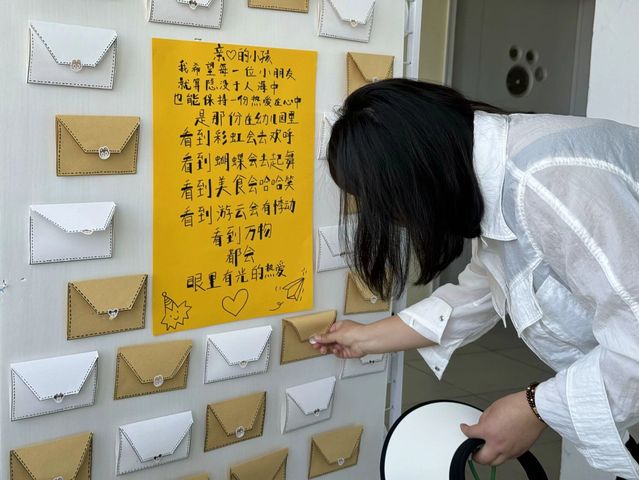 亲♡的小孩
我希望每一位小朋友
就算隐没于人海中
也能保持一份热爱在心中
是那份在幼儿园里
看到彩虹会去欢呼
看到蝴蝶会去起舞
看到美食会哈哈笑
看到游云会有悸动
看到万物
都会
眼里有光的热爱